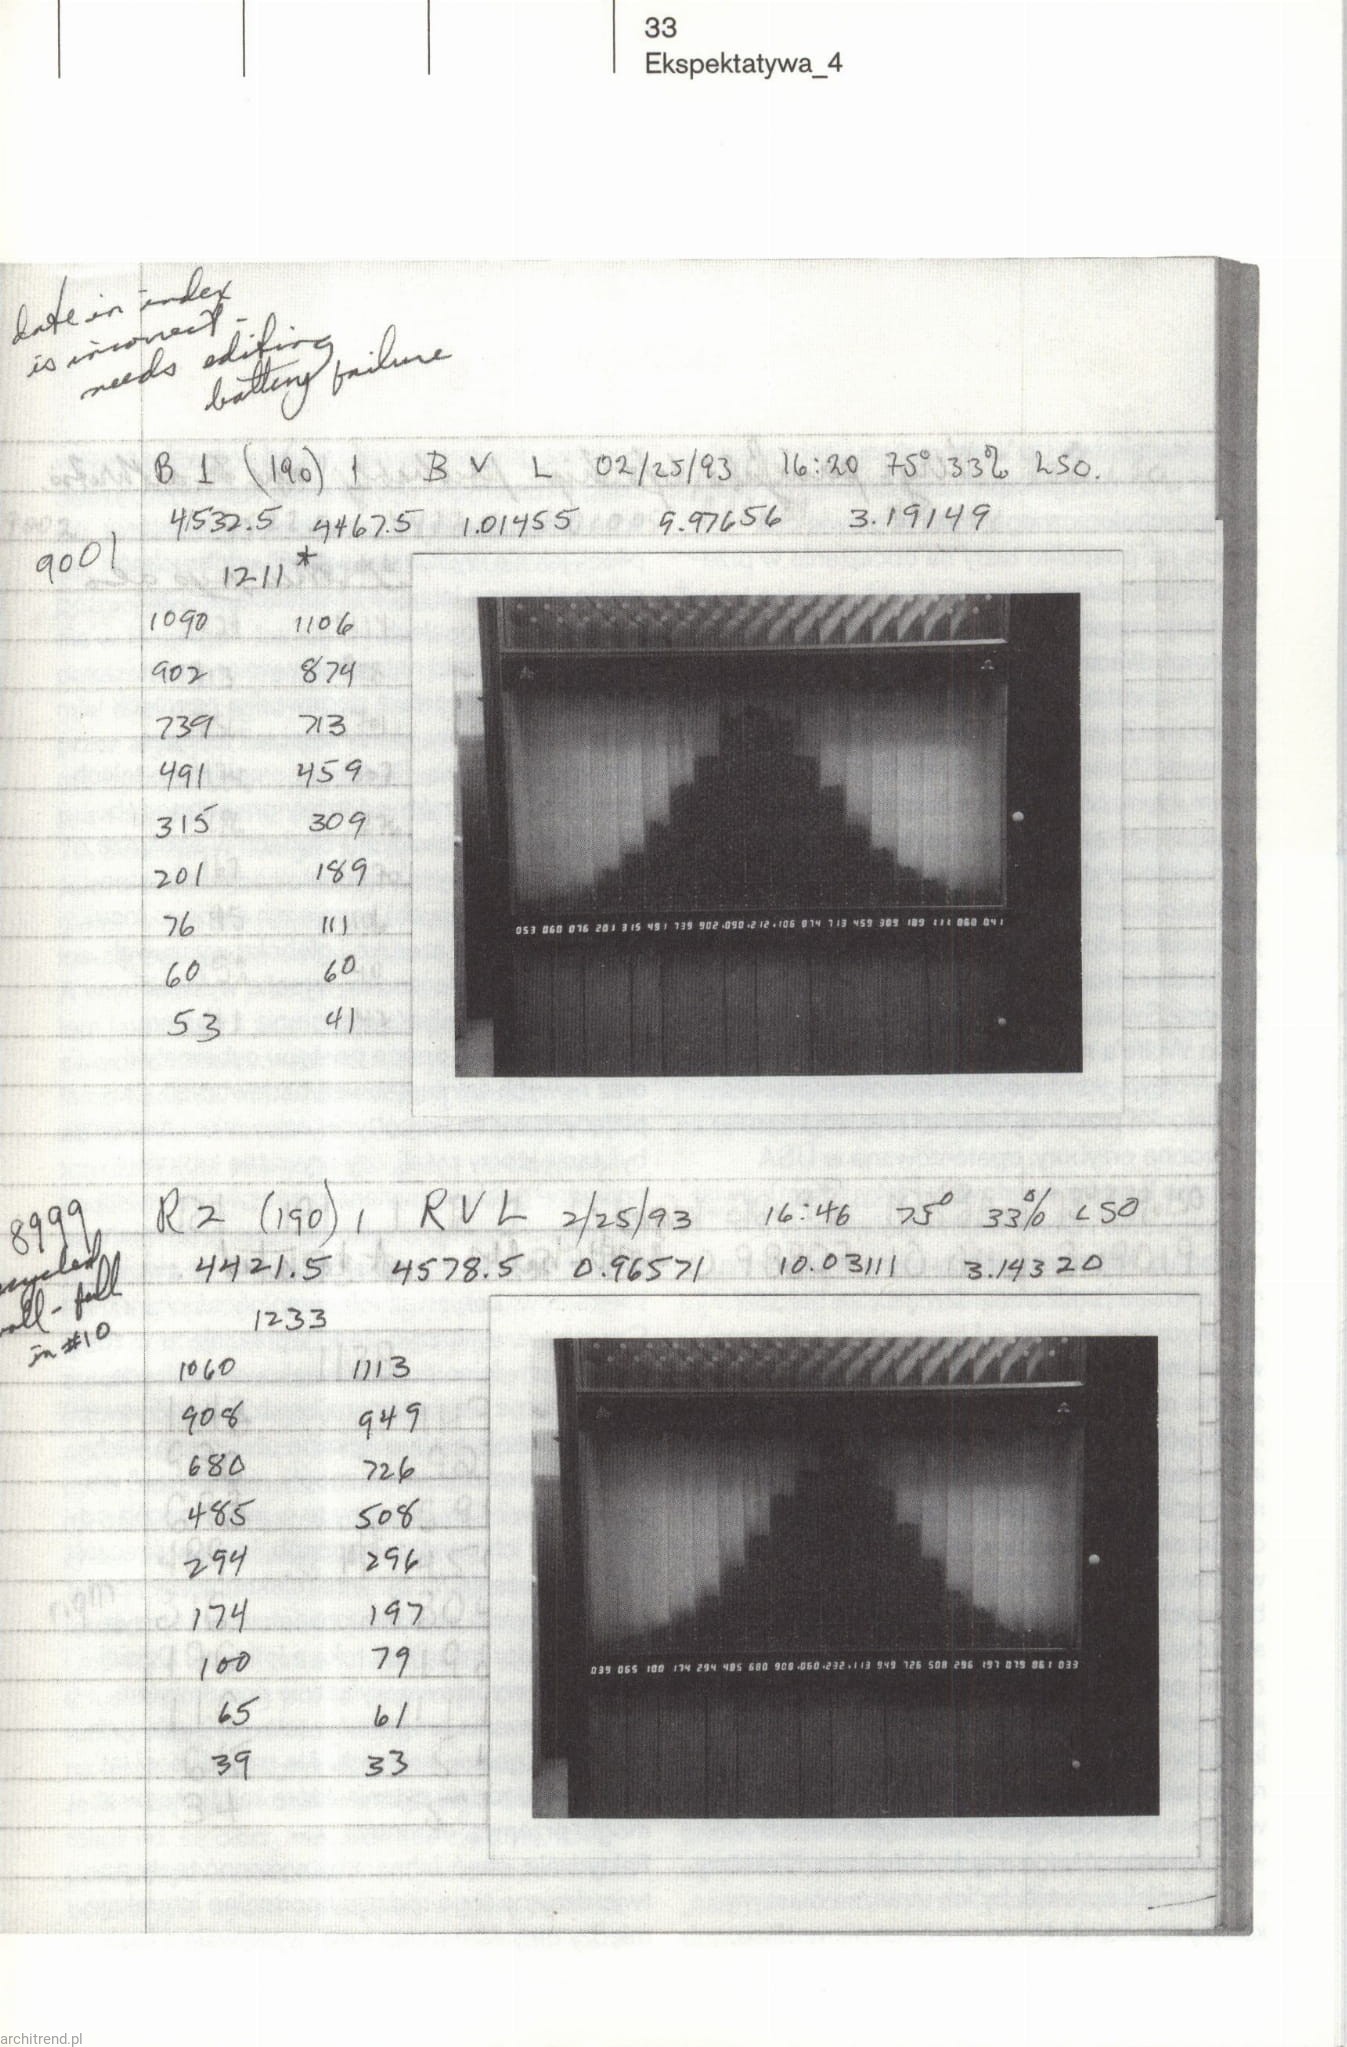 33
Ekspektatywa_4
date in index
is incorrect -
needs editing
battery failure
B 1 (190) 1 B V L 02/25/93 16:20 75° 33% LSO.
4532.5 4467.5 1.01455 9.97656 3.19149
9001
1211*
1090 1106
902 874
739 713
491 459
315 309
201 189
76 111
60 60
53 41
053 060 076 201 315 491 739 902 090 212 106 874 713 459 309 189 111 060 041
R 2 (190) 1 R V L 2/25/93 16:46 75° 33% LSO
8999
4421.5 4578.5 0.96571 10.03111 3.14320
in #10
1233
1060 1113
908 949
680 726
485 508
294 296
174 197
100 79
65 61
39 33
039 065 100 174 294 485 680 908 060 232 113 949 726 508 296 197 079 061 033
architrend.pl